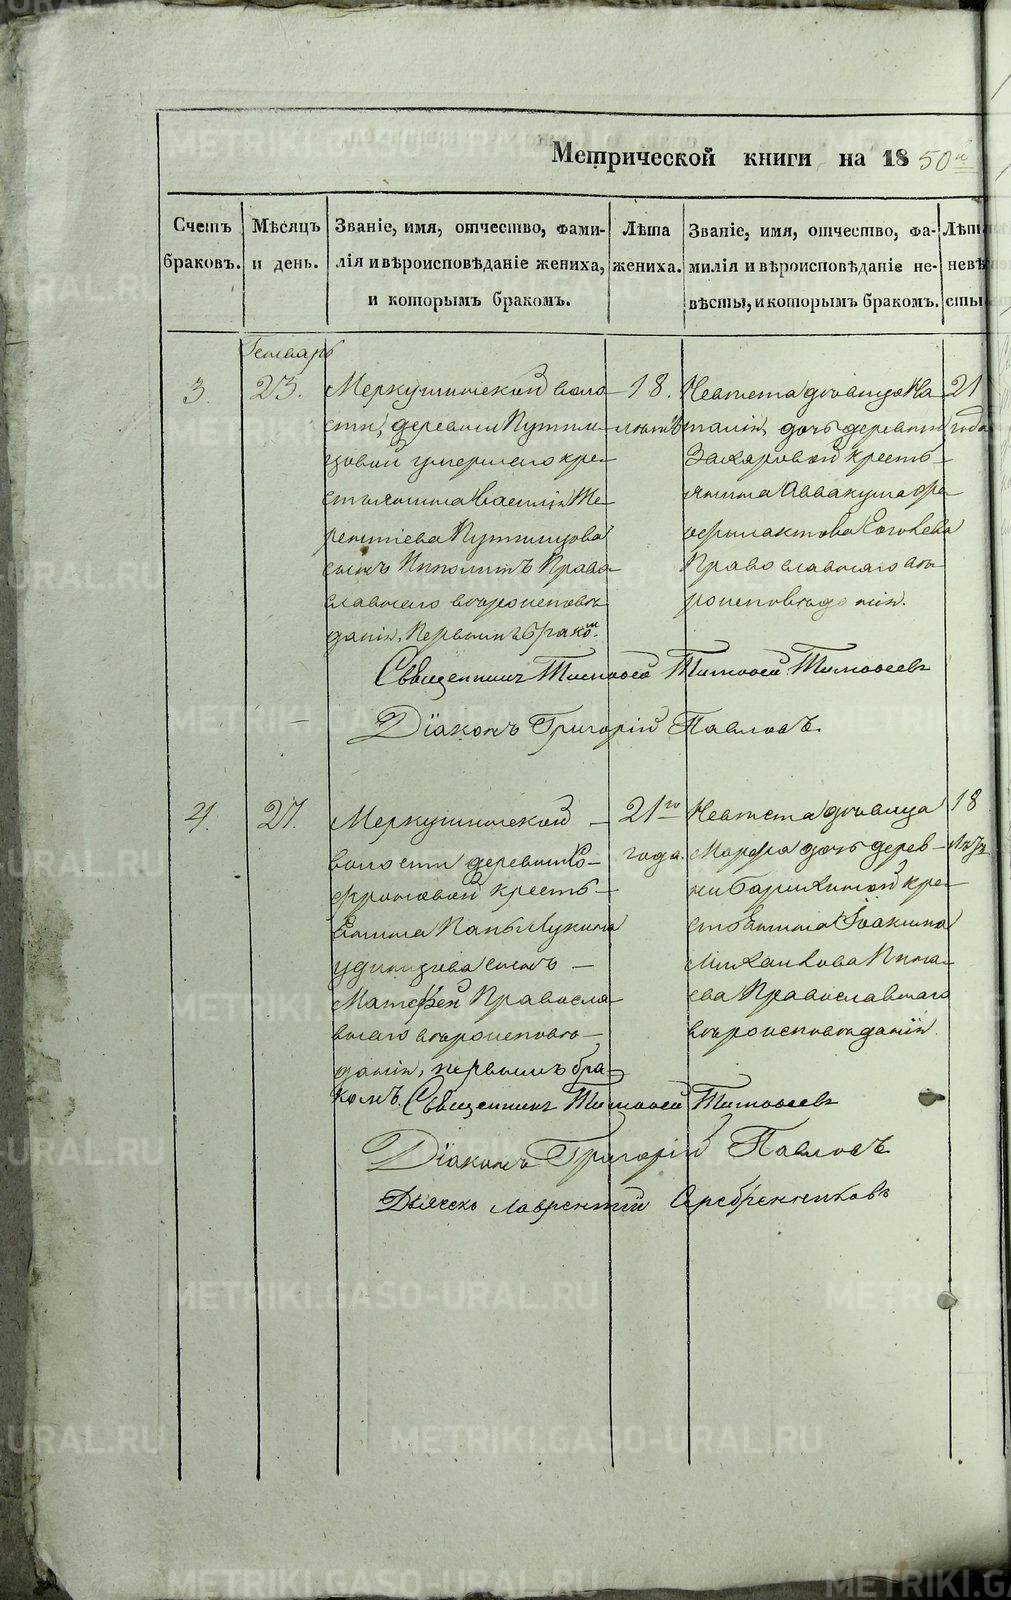 Метрической книги на 1850й
Счетъ браковъ.
Мѣсяцъ и день.
Званіе, имя, отчество, фами-
лія и вѣроисповѣданіе жениха,
и которымъ бракомъ.
Лѣта
жениха.
Званіе, имя, отчество, фа-
милія и вѣроисповѣданіе не-
вѣсты, и которымъ бракомъ.
Лѣта
невѣ
сты
Генварь
3.
23.
Меркушинской воло
сти, деревни
цовой умершаго кре-
стьянина Василія Те-
рентіева
сынъ Ипполитъ Право
славнаго вѣроисповѣ
данія, первымъ бракомъ.
18.
лѣтъ
Невѣста дѣвица На
талія, дочь деревни
Захаровой кресть-
янина Аввакума Фе-
офилактова
Православнаго вѣ
роисповѣданія.
21
года
Священникъ Тимофей Тимофей Тимофеевъ
Діаконъ Григорій Павловъ
4.
27.
Меркушинской
волости деревни
кресть-
янина Лукина
сынъ
Матфей Правосла
внаго вѣроисповѣ-
данія, первымъ бра-
комъ.
21го
года.
Невѣста дѣвица
Марфа дочь дерев-
ни кре-
стьянина Іоакима
Михайлова
Православнаго
вѣроисповѣданія.
18
лѣтъ
Священникъ Тимофей Тимофеевъ
Діаконъ Григорій Павловъ
Дьячекъ Лаврентій Серебренниковъ
METRIKI.GASO-URAL.RU